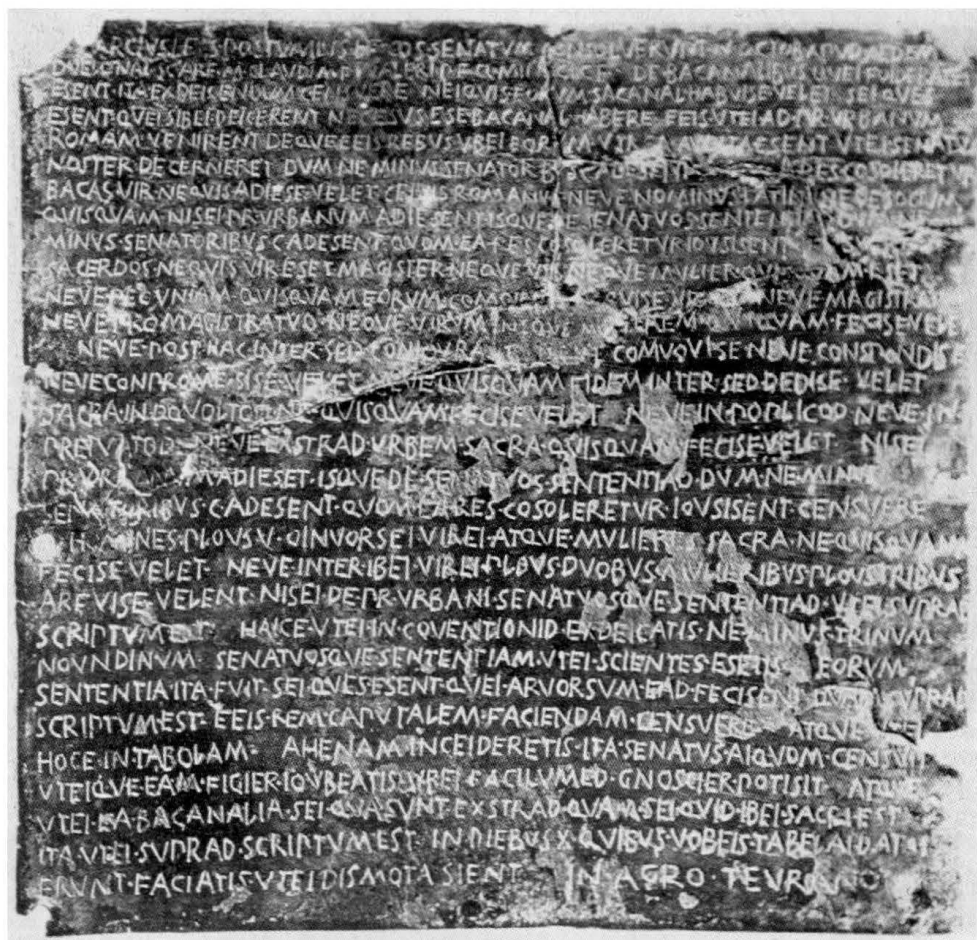 MARCIVS·L·F·S·POSTVMIVS·L·F·COS·SENATVM·CONSOLVERVNT·N·OCTOB·APVD·AEDEM
DVELONAI·SC·ARF·M·CLAVDI·M·F·VALERI·P·F·Q·MINVCI·C·F·DE·BACANALIBVS·QVEI·FOIDERATEI
ESENT·ITA·EXDEICENDVM·CENSVERE·NEIQVIS·EORVM·BACANAL·HABVISE·VELET·SEI·QVES
ESENT·QVEI·SIBEI·DEICERENT·NECESVS·ESE·BACANAL·HABERE·EEIS·VTEI·AD·PR·VRBANVM
ROMAM·VENIRENT·DEQVE·EEIS·REBVS·VBEI·EORVM·ESENT·VTEI·SENATVS
NOSTER·DECERNERET·DVM·NE·MINVS·SENATORBVS·C·ADESENT·RES·COSOLORETVR
BACAS·VIR·NEQVIS·ADIESE·VELET·CEIVIS·ROMANVS·NEVE·NOMINVS·LATINI·NEVE·SOCIVM
QVISQVAM·NISEI·PR·VRBANVM·ADIESENT·ISQVE·DE·SENATVOS·SENTENTIAD·DVM·NE
MINVS·SENATORIBVS·C·ADESENT·QVOM·EA·RES·COSOLERETVR·IOVSISENT
SACERDOS·NEQVIS·VIR·ESET·MAGISTER·NEQVE·VIR·NEQVE·MVLIER·QVISQVAM·ESET
NEVE·PECVNIAM·QVISQVAM·EORVM·NEVE·MAGISTRATVM
NEVE·PRO·MAGISTRATVD·NEQVE·VIRVM·QVISQVAM·FECISE·VELET
NEVE·POST·HAC·INTER·SED·CONIOVRASE·COMVOVISE·NEVE·CONSPONDISE
NEVE·CONPROMESISE·VELET·NEVE·QVISQVAM·FIDEM·INTER·SED·DEDISE·VELET
SACRA·IN·OQVOLTOD·NE·QVISQVAM·FECISE·VELET·NEVE·IN·POPLICOD·NEVE·IN
PREIVATOD·NEVE·EXSTRAD·VRBEM·SACRA·QVISQVAM·FECISE·VELET·NISEI
PR·VRBANVM·ADIESET·ISQVE·DE·SENATVOS·SENTENTIAD·DVM·NE·MINVS
SENATORIBVS·C·ADESENT·QVOM·EA·RES·COSOLERETVR·IOVSISENT·CENSVERE
HOMINES·PLOVS·V·OINVORSEI·VIREI·ATQVE·MVLIERES·SACRA·NE·QVISQVAM
FECISE·VELET·NEVE·INTER·IBEI·VIREI·PLOVS·DVOBVS·MVLIERIBVS·PLOVS·TRIBVS
ARFVISE·VELENT·NISEI·DE·PR·VRBANI·SENATVOSQVE·SENTENTIAD·VTEI·SVPRAD
SCRIPTVM·EST·HAICE·VTEI·IN·COVENTIONID·EXDEICATIS·NE·MINVS·TRINVM
NOVNDINVM·SENATVOSQVE·SENTENTIAM·VTEI·SCIENTES·ESETIS·EORVM
SENTENTIA·ITA·FVIT·SEI·QVES·ESENT·QVEI·ARVORSVM·EAD·FECISENT·QVAM·SVPRAD
SCRIPTVM·EST·EEIS·REM·CAPVTALEM·FACIENDAM·CENSVERE·ATQVE·VTEI
HOCE·IN·TABOLAM·AHENAM·INCEIDERETIS·ITA·SENATVS·AIQVOM·CENSVIT
VTEIQVE·EAM·FIGIER·IOVBEATIS·VBEI·FACILVMED·GNOSCIER·POTISIT·ATQVE
VTEI·EA·BACANALIA·SEI·QVA·SVNT·EXSTRAD·QVAM·SEI·QVID·IBEI·SACRI·EST
ITA·VTEI·SVPRAD·SCRIPTVM·EST·IN·DIEBVS·X·QVIBVS·VOBEIS·TABELAI·DATAI
ERVNT·FACIATIS·VTEI·DISMOTA·SIENT IN·AGRO·TEVRANO